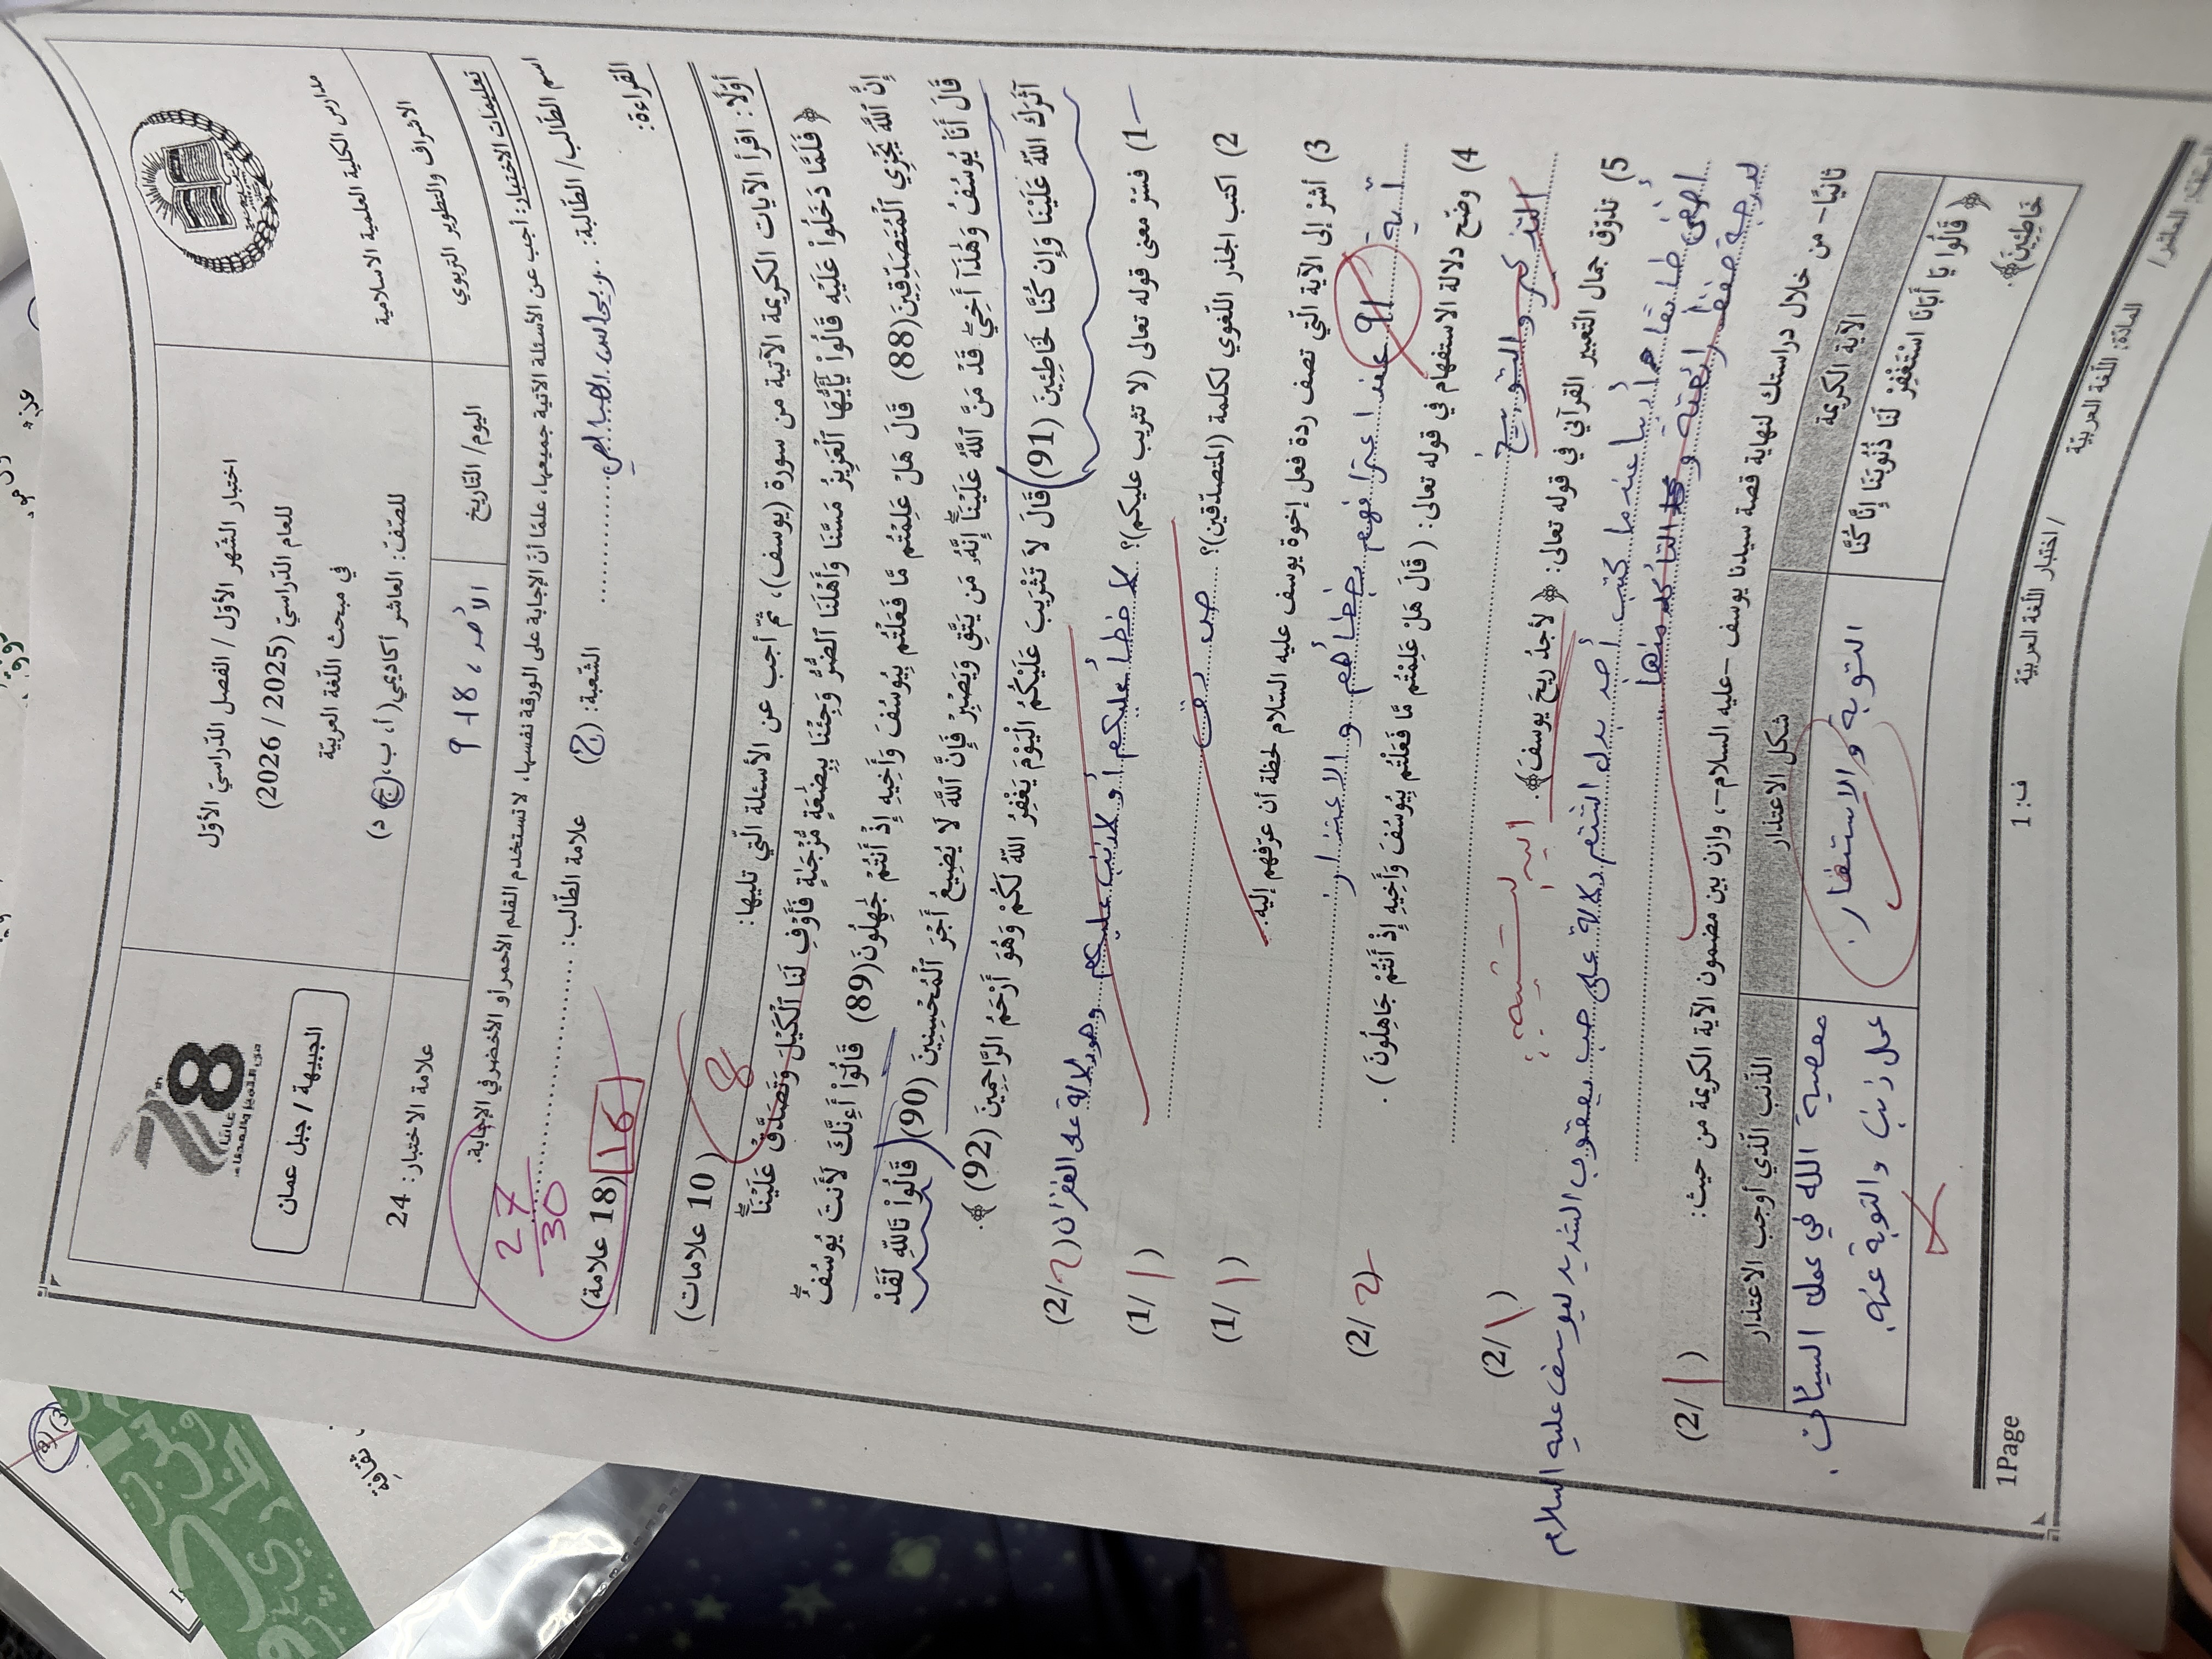 مدارس الكلية العلمية الاسلامية
الاشراف والتطوير التربوي
اختبار الشهر الأوّل / الفصل الدّراسيّ الأوّل
للعام الدّراسيّ (2025 / 2026)
في مبحث اللّغة العربيّة
للصّفّ: العاشر أكاديمي( أ، ب، ج، د)
الجبيهة / جبل عمان
اليوم/ التّاريخ
الأحد، 18-9
علامة الاختبار: 24
تعليمات الاختبار: أجب عن الأسئلة الآتية جميعها، علمًا أنّ الإجابة على الورقة نفسها، لا تستخدم القلم الأحمر أو الأخضر في الإجابة.
اسم الطّالب/ الطّالبة:
الشّعبة: (ج)
علامة الطّالب:
27/30
القراءة:
(18 علامة)
16
أوّلًا: اقرأ الآيات الكريمة الآتية من سورة (يوسف)، ثمّ أجب عن الأسئلة الّتي تليها:
(10 علامات)
8
﴿ فَلَمَّا دَخَلُوا۟ عَلَيْهِ قَالُوا۟ يَٰٓأَيُّهَا ٱلْعَزِيزُ مَسَّنَا وَأَهْلَنَا ٱلضُّرُّ وَجِئْنَا بِبِضَٰعَةٍ مُّزْجَىٰةٍ فَأَوْفِ لَنَا ٱلْكَيْلَ وَتَصَدَّقْ عَلَيْنَآ ۖ
إِنَّ ٱللَّهَ يَجْزِي ٱلْمُتَصَدِّقِينَ(88) قَالَ هَلْ عَلِمْتُم مَّا فَعَلْتُم بِيُوسُفَ وَأَخِيهِ إِذْ أَنتُمْ جَٰهِلُونَ(89) قَالُوٓا۟ أَءِنَّكَ لَأَنتَ يُوسُفُ ۖ
قَالَ أَنَا۠ يُوسُفُ وَهَٰذَآ أَخِي ۖ قَدْ مَنَّ ٱللَّهُ عَلَيْنَآ ۖ إِنَّهُ مَن يَتَّقِ وَيَصْبِرْ فَإِنَّ ٱللَّهَ لَا يُضِيعُ أَجْرَ ٱلْمُحْسِنِينَ (90) قَالُوا۟ تَاللَّهِ لَقَدْ
آثَرَكَ اللَّهُ عَلَيْنَا وَإِن كُنَّا لَخَاطِئِينَ (91) قَالَ لَا تَثْرِيبَ عَلَيْكُمُ الْيَوْمَ يَغْفِرُ اللَّهُ لَكُمْ وَهُوَ أَرْحَمُ الرَّاحِمِينَ (92) ﴾.
1) فسّر معنى قوله تعالى (لا تثريب عليكم)؟ لا خطأ عليكم أو لا ذنب عليكم وهو دلالة على الغفران (2/2)
(1/1)
2) اكتب الجذر اللّغوي لكلمة (المتصدّقين)؟ صدق
(1/1)
3) أشرْ إلى الآية الّتي تصف ردة فعل إخوة يوسف عليه السّلام لحظة أن عرّفهم إليه.
آية 91 عند اعترافهم بخطأهم والاعتذار (2/2)
4) وضّح دلالة الاستفهام في قوله تعالى: ( قَالَ هَلْ عَلِمْتُم مَّا فَعَلْتُم بِيُوسُفَ وَأَخِيهِ إِذْ أَنتُمْ جَاهِلُونَ ) .
التذكير والتوبيخ
(2/1)
5) تذوّق جمال التّعبير القرآني في قوله تعالى: ﴿ لأجدُ ريحَ يوسفَ﴾.
بدل اشتم دلالة على حب يعقوب الشديد ليوسف عليه السلام
(2/1)
ثانيًا- من خلال دراستك لنهاية قصة سيدنا يوسف -عليه السلام-، وازن بين مضمون الآية الكريمة من حيث:
الآية الكريمة
شكل الاعتذار
الذّنب الّذي أوجب الاعتذار
﴿ قَالُوا يَا أَبَانَا اسْتَغْفِرْ لَنَا ذُنُوبَنَا إِنَّا كُنَّا
خَاطِئِينَ﴾.
التوبة والاستغفار.
معصية الله في عمل السيئات.
عمل ذنب والتوبة عنه.
المادّة: اللّغة العربيّة
/ اختبار اللّغة العربيّة
ف: 1
1Page